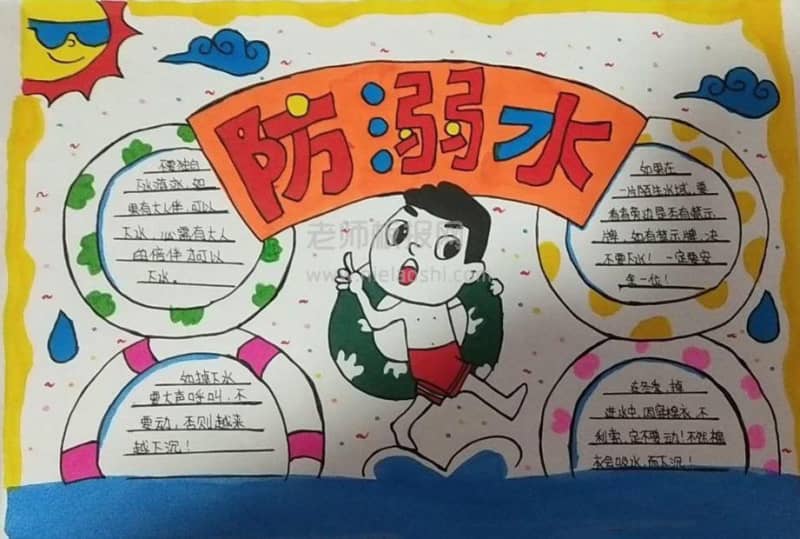 防溺水
不要独自
下水游泳,如
果有大人伴,可以
下水,必需有大人
的陪伴才可以
下水。
如果在
一片陌生水域,要
看看旁边是否有警示
牌,如有警示牌,决
不要下水!一定要安
全一位!
老师板报网
如掉下水
要大声呼叫,不
要动,否则越来
越下沉!
在冬季,掉
进水中,因穿棉衣,不
利索,定不要动!不然棉
衣会吸水,而下沉!